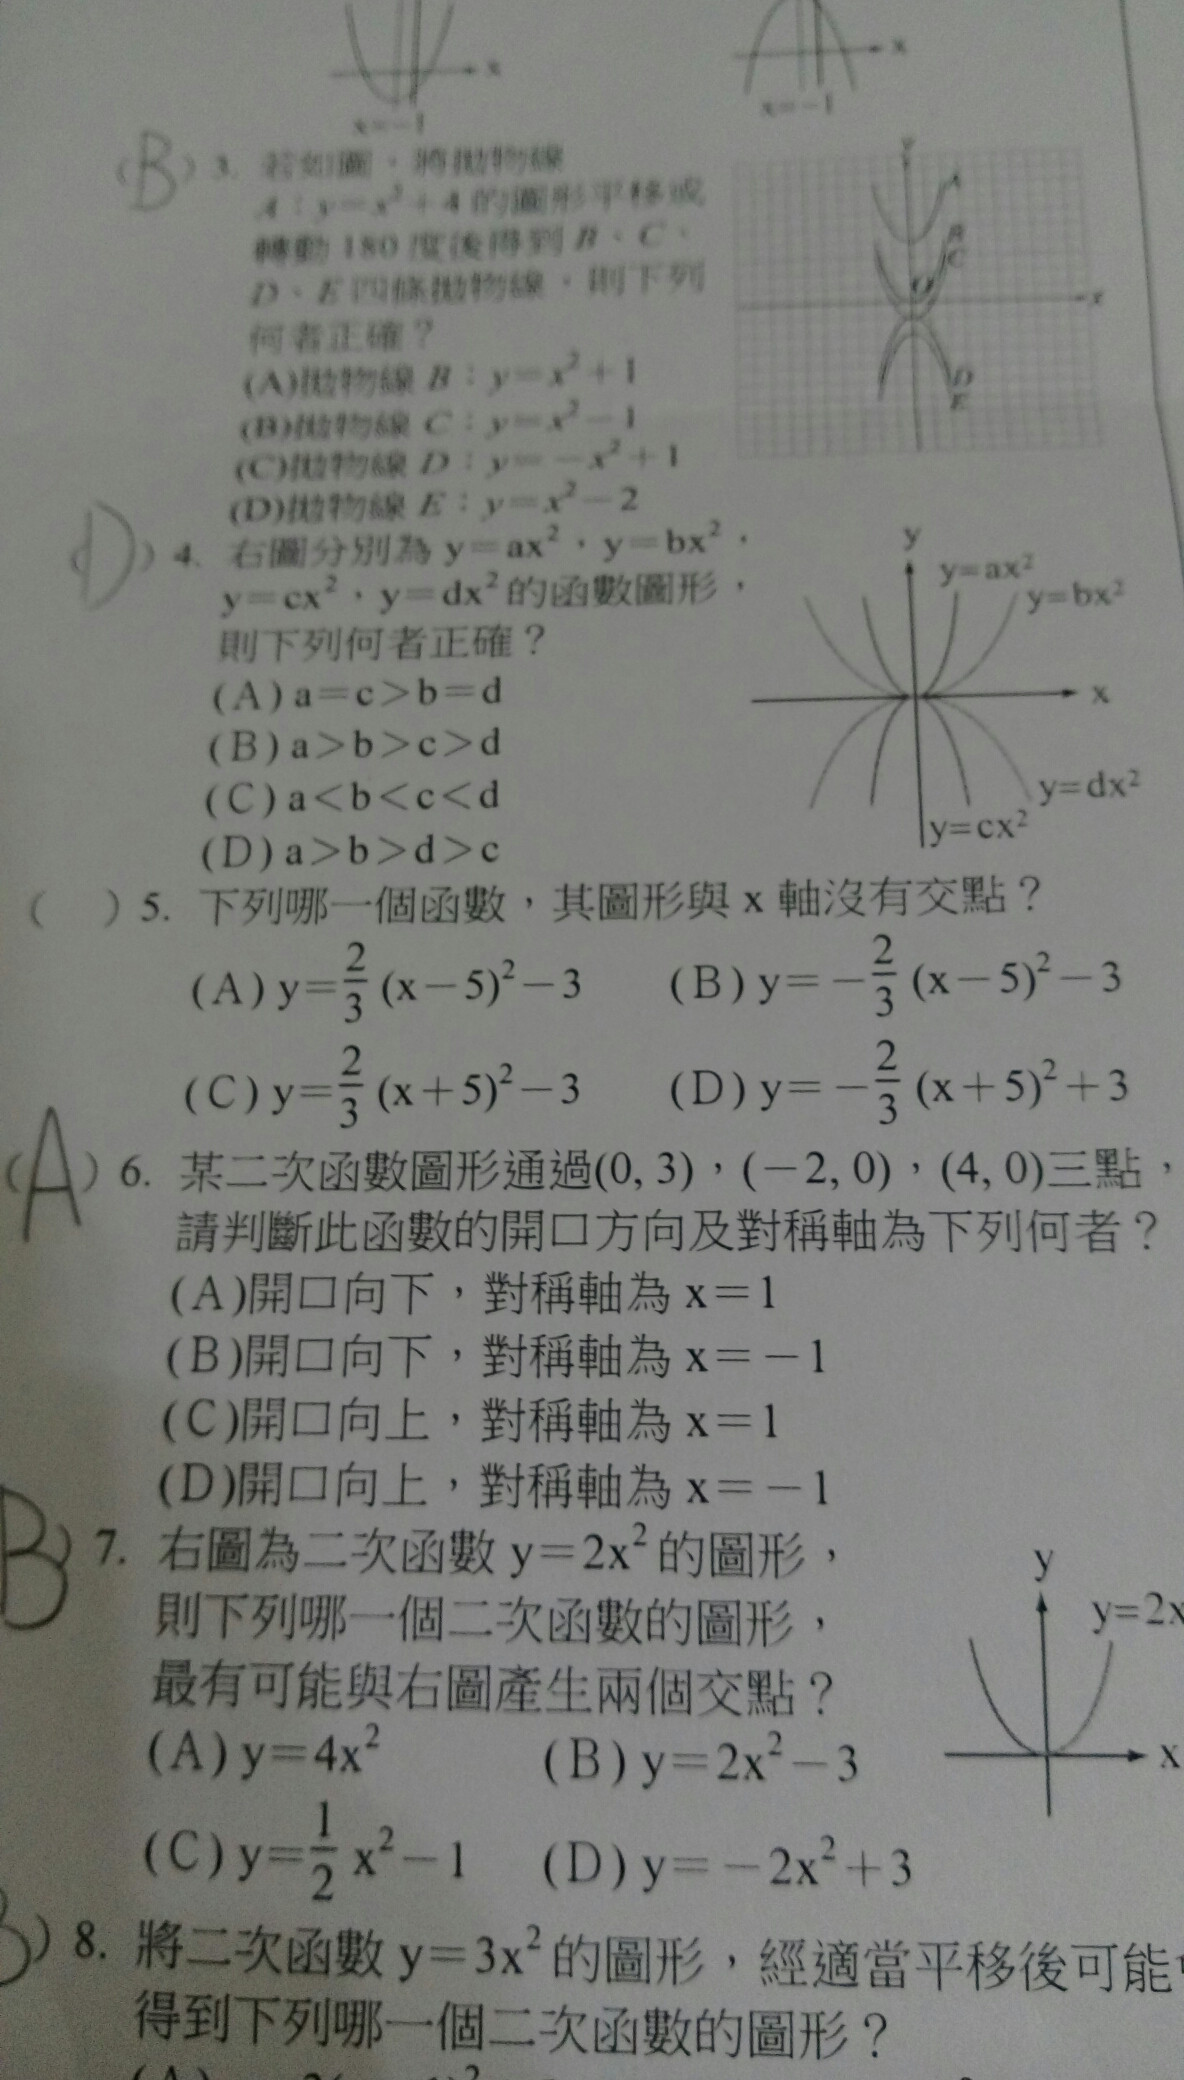 x
x=-1
x
x=-1
(B) 3. 若如圖，將拋物線
A：y=x²+4 的圖形平移或
轉動 180 度後得到 B、C、
D、E 四條拋物線，則下列
何者正確？
(A)拋物線 B：y=x²+1
(B)拋物線 C：y=x²-1
(C)拋物線 D：y=-x²+1
(D)拋物線 E：y=x²-2
y
A
B
C
O
x
D
E
(D) 4. 右圖分別為 y=ax²，y=bx²，
y=cx²，y=dx² 的函數圖形，
則下列何者正確？
(A) a=c>b=d
(B) a>b>c>d
(C) a<b<c<d
(D) a>b>d>c
y
y=ax²
y=bx²
x
y=dx²
y=cx²
( ) 5. 下列哪一個函數，其圖形與 x 軸沒有交點？
(A) y=2/3 (x-5)²-3 (B) y=-2/3 (x-5)²-3
(C) y=2/3 (x+5)²-3 (D) y=-2/3 (x+5)²+3
(A) 6. 某二次函數圖形通過(0, 3)，(-2, 0)，(4, 0)三點，
請判斷此函數的開口方向及對稱軸為下列何者？
(A)開口向下，對稱軸為 x=1
(B)開口向下，對稱軸為 x=-1
(C)開口向上，對稱軸為 x=1
(D)開口向上，對稱軸為 x=-1
B) 7. 右圖為二次函數 y=2x² 的圖形，
則下列哪一個二次函數的圖形，
最有可能與右圖產生兩個交點？
(A) y=4x² (B) y=2x²-3
(C) y=1/2 x²-1 (D) y=-2x²+3
y
y=2x
x
) 8. 將二次函數 y=3x² 的圖形，經適當平移後可能
得到下列哪一個二次函數的圖形？